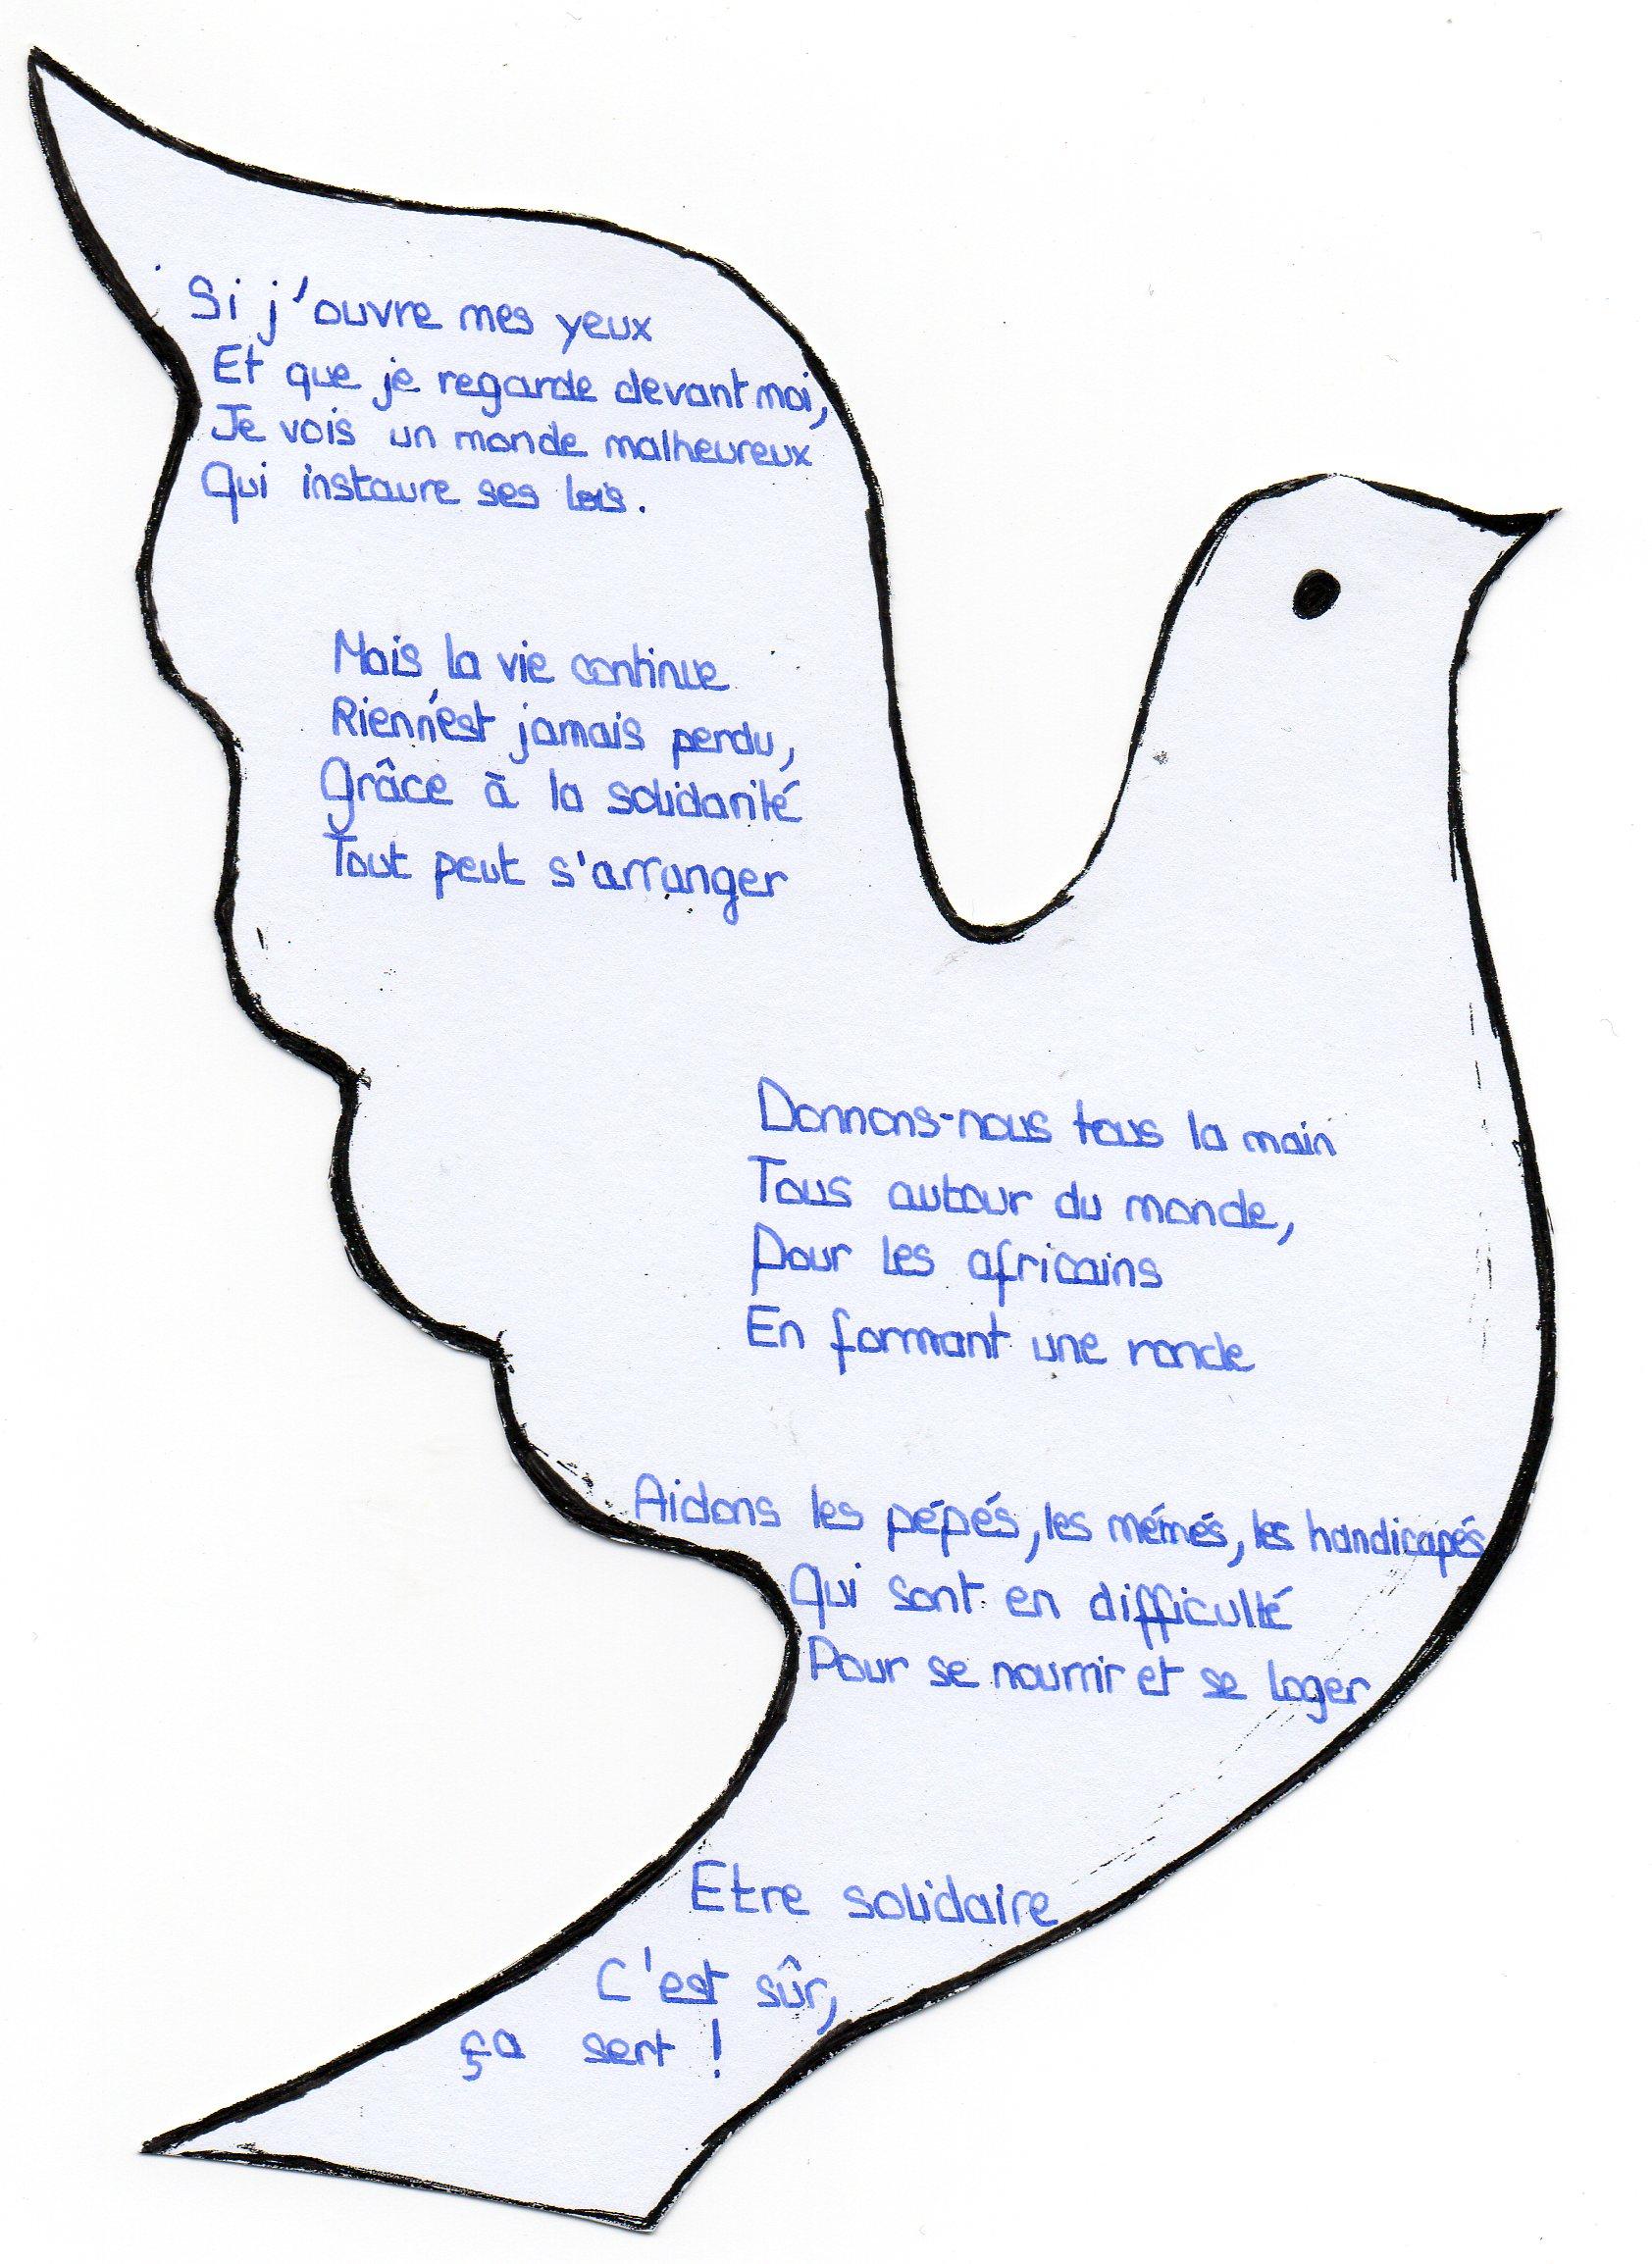 Si j'ouvre mes yeux
Et que je regarde devant moi,
Je vois un monde malheureux
Qui instaure ses lois.
Mais la vie continue
Rien n'est jamais perdu,
Grâce à la solidarité
Tout peut s'arranger
Donnons-nous tous la main
Tous autour du monde,
Pour les africains
En formant une ronde
Aidons les pépés, les mémés, les handicapés
Qui sont en difficulté
Pour se nourrir et se loger
Etre solidaire
C'est sûr,
ça sert !